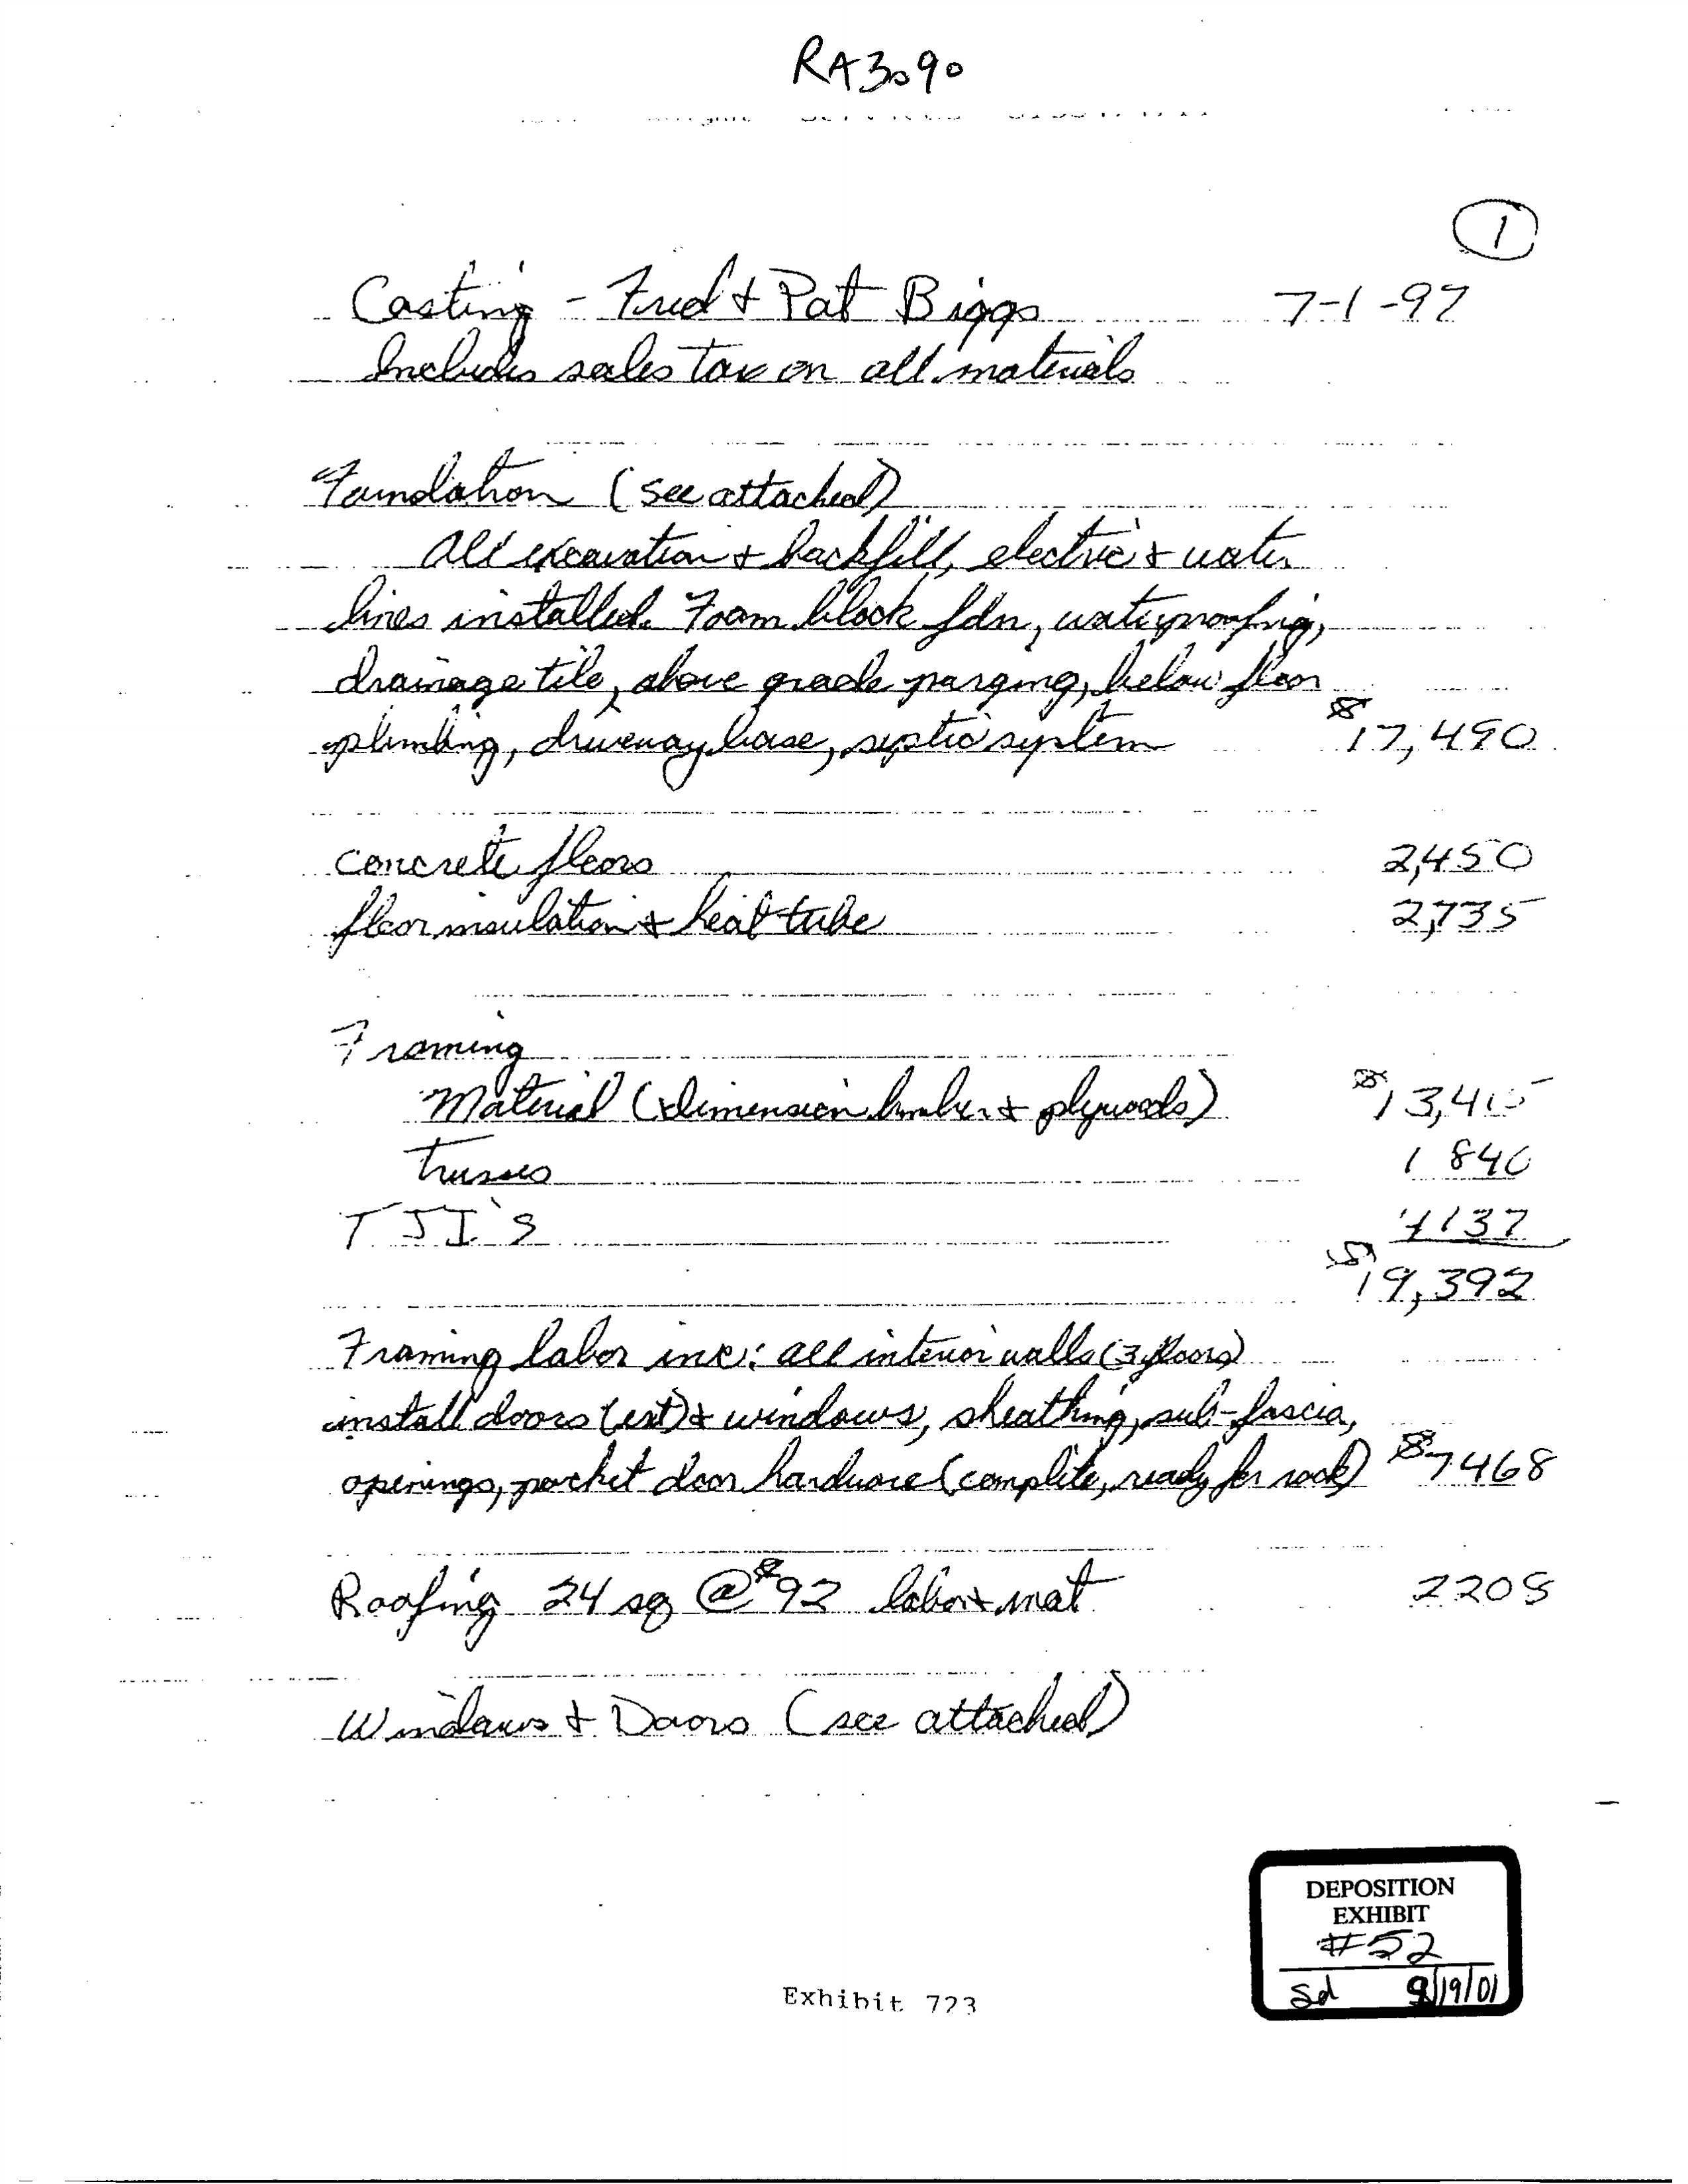 RA3090
1
Costing - Fred & Pat Biggs 7-1-97
Includes sales tax on all materials
Foundation (see attached)
All excavation & backfill, electric & water
lines installed. Foam block fdn, waterproofing,
drainage tile, above grade parging, below floor
plumbing, driveway base, septic system $17,490
concrete floors 2,450
floor insulation & heat tube 2,735
Framing
Material (dimension lumber & plywoods) $13,415
Trusses 1840
TJI's 4137
$19,392
Framing labor inc: all interior walls (3 floors)
install doors (ext) & windows, sheathing, sub-fascia,
openings, pocket door hardware (complete, ready for rock) $7468
Roofing 24 sq @ $92 labor & mat 2208
Windows & Doors (see attached)
DEPOSITION
EXHIBIT
#52
Sd 9/19/01
Exhibit 723